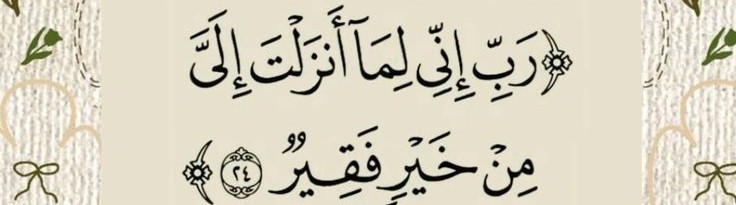 ﴿رَبِّ إِنِّى لِمَآ أَنزَلْتَ إِلَىَّ
مِنْ خَيْرٍ فَقِيرٌ ٢٤﴾